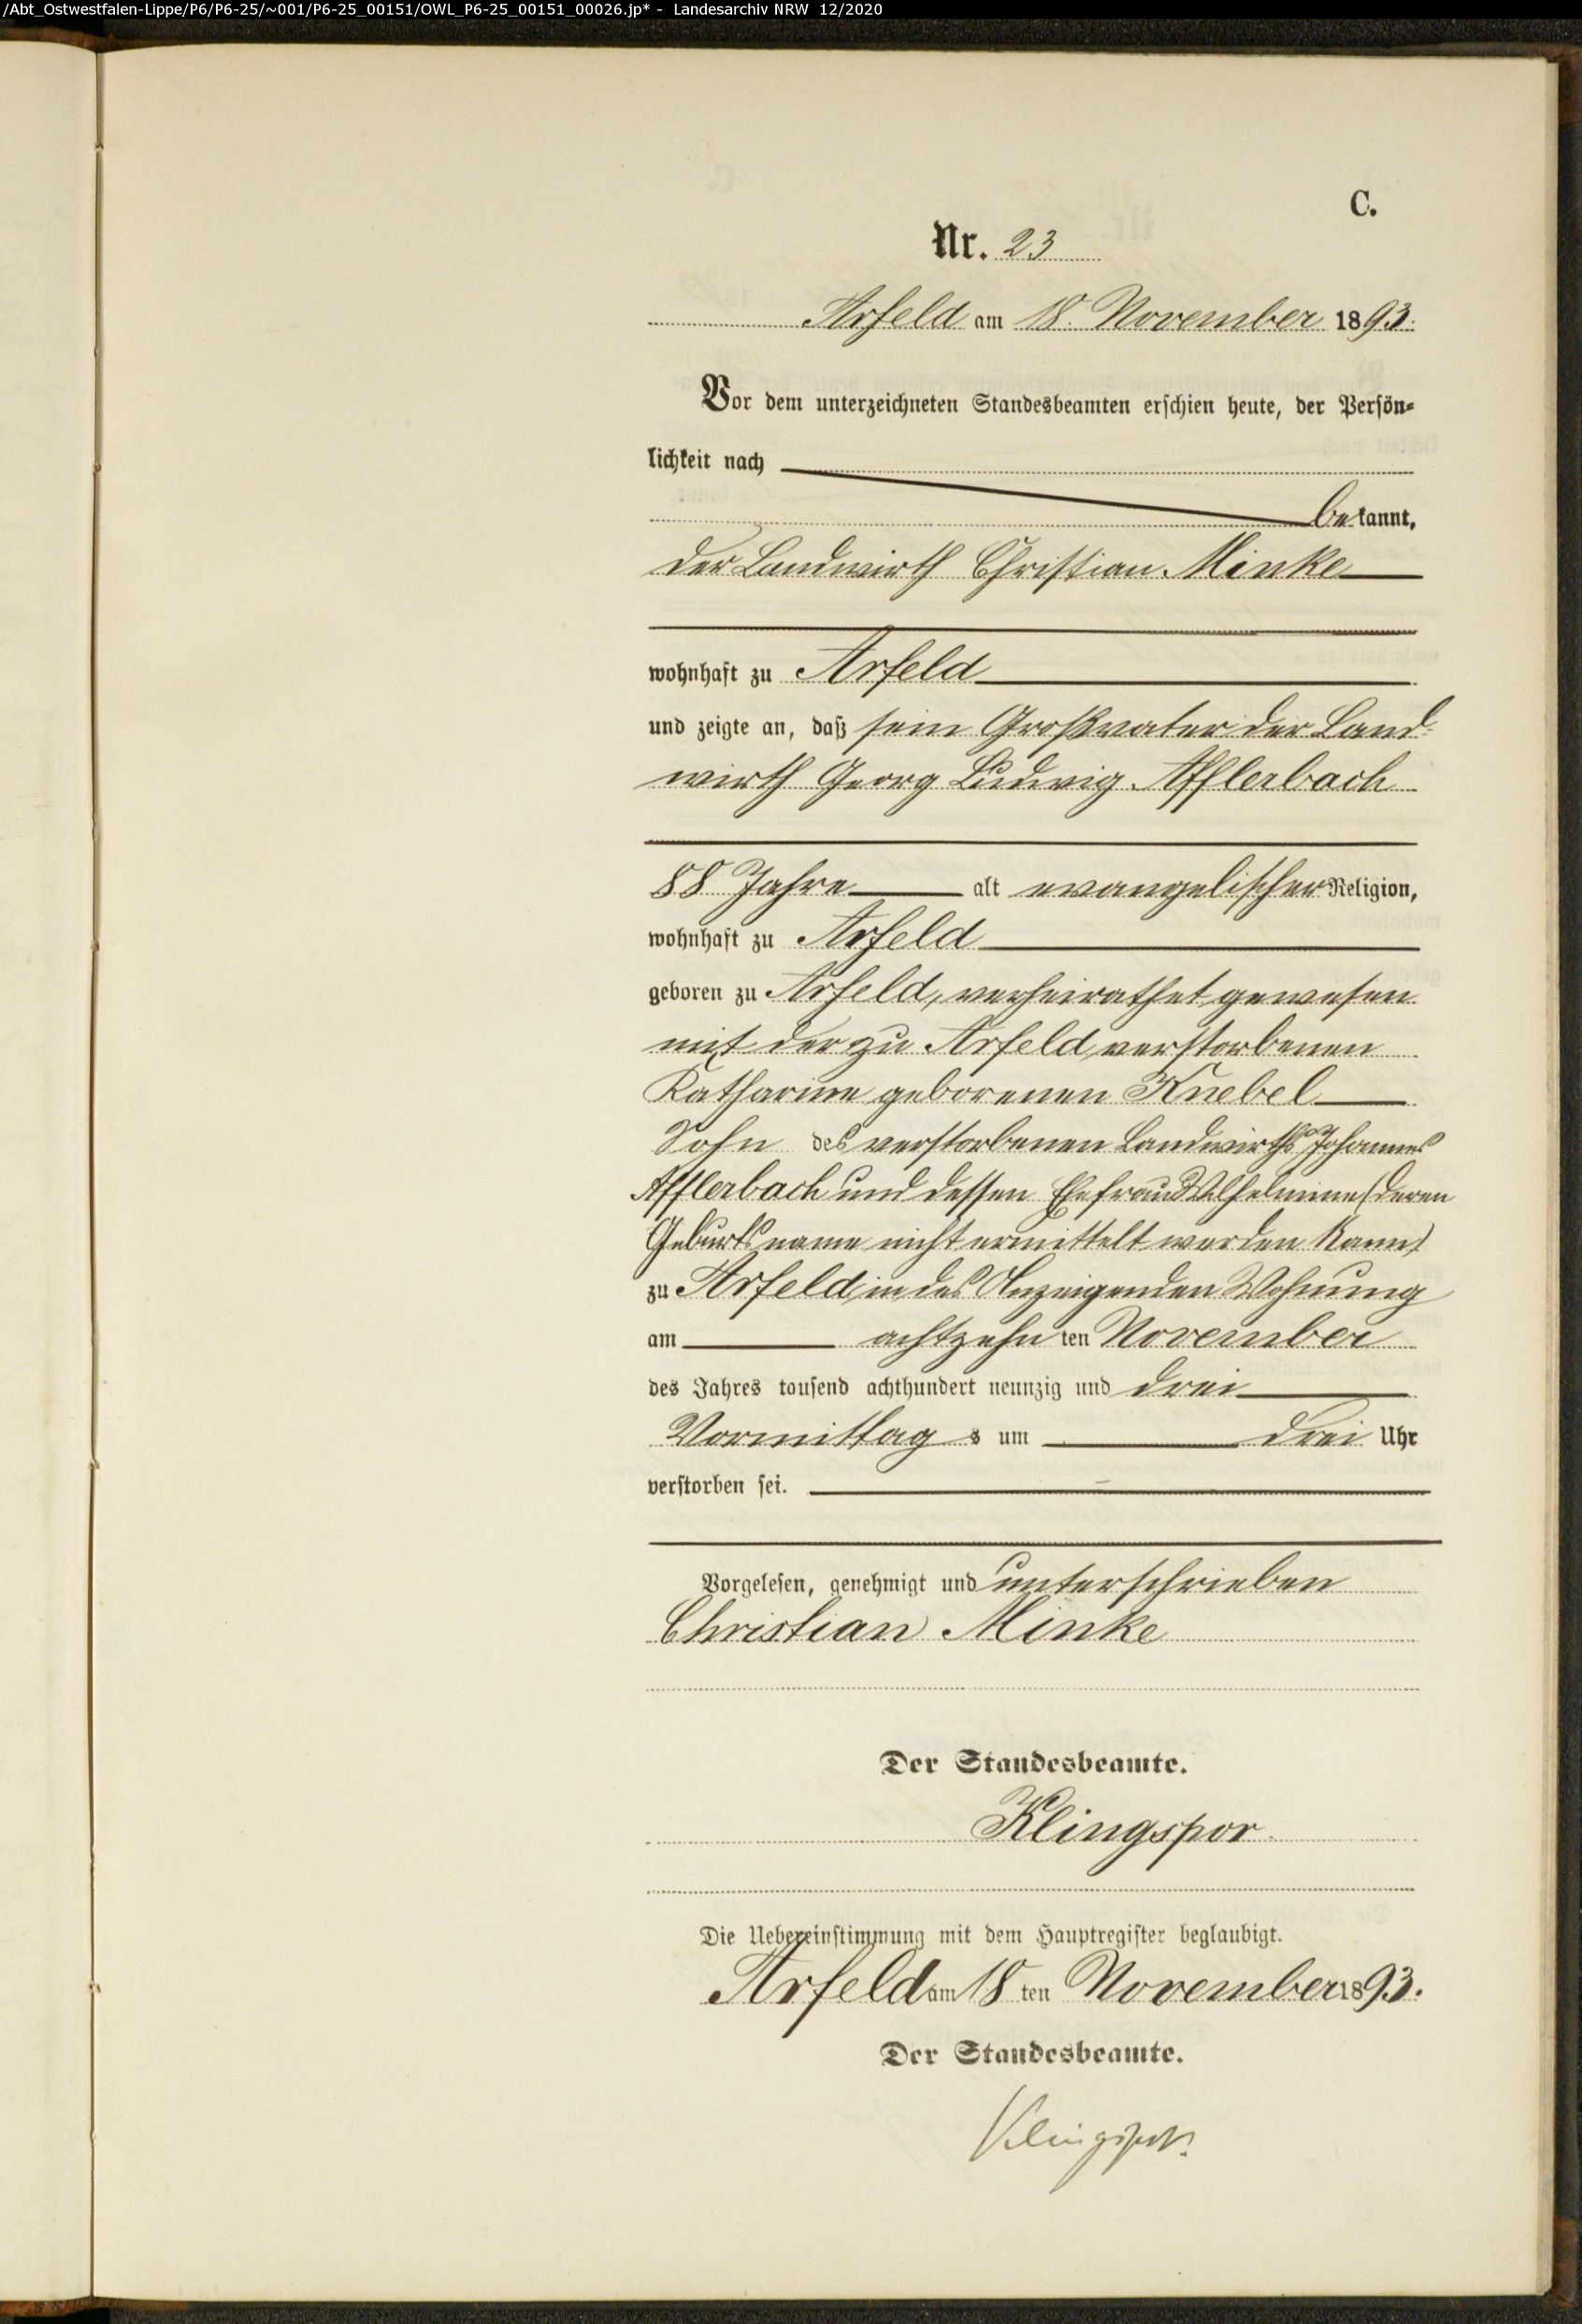 /Abt_Ostwestfalen-Lippe/P6/P6-25/~001/P6-25_00151/OWL_P6-25_00151_00026.jp* - Landesarchiv NRW 12/2020
C.
Nr. 23
Arfeld am 18. November 1893.
Vor dem unterzeichneten Standesbeamten erschien heute, der Persön-
lichkeit nach
bekannt,
der Landwirth Christian Minke
wohnhaft zu Arfeld
und zeigte an, daß sein Großvater der Land-
wirth Georg Ludwig Afflerbach
88 Jahre alt evangelischer Religion,
wohnhaft zu Arfeld
geboren zu Arfeld, verheirathet gewesen
mit der zu Arfeld verstorbenen
Katharine geborenen Knebel
Sohn des verstorbenen Landwirths Johannes
Afflerbach und dessen Ehefrau Wilhelmine (deren
Geburtsname nicht ermittelt werden kann)
zu Arfeld in des Anzeigenden Wohnung
am achtzehn ten November
des Jahres tausend achthundert neunzig und drei
Vormittag s um drei Uhr
verstorben sei.
Vorgelesen, genehmigt und unterschrieben
Christian Minke
Der Standesbeamte.
Klingspor.
Die Uebereinstimmung mit dem Hauptregister beglaubigt.
Arfeld am 18 ten November 1893.
Der Standesbeamte.
Klingspor.